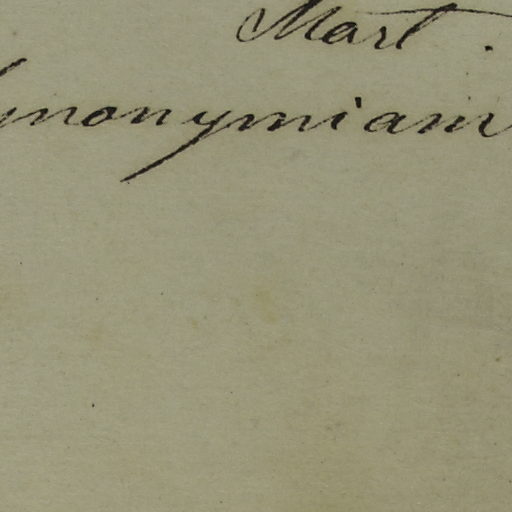 Mart.
ynonymiam